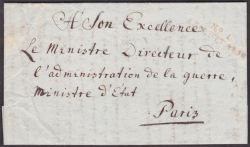 A Son Excellence
Le Ministre Directeur de
l'administration de la guerre,
Ministre d'Etat
Paris